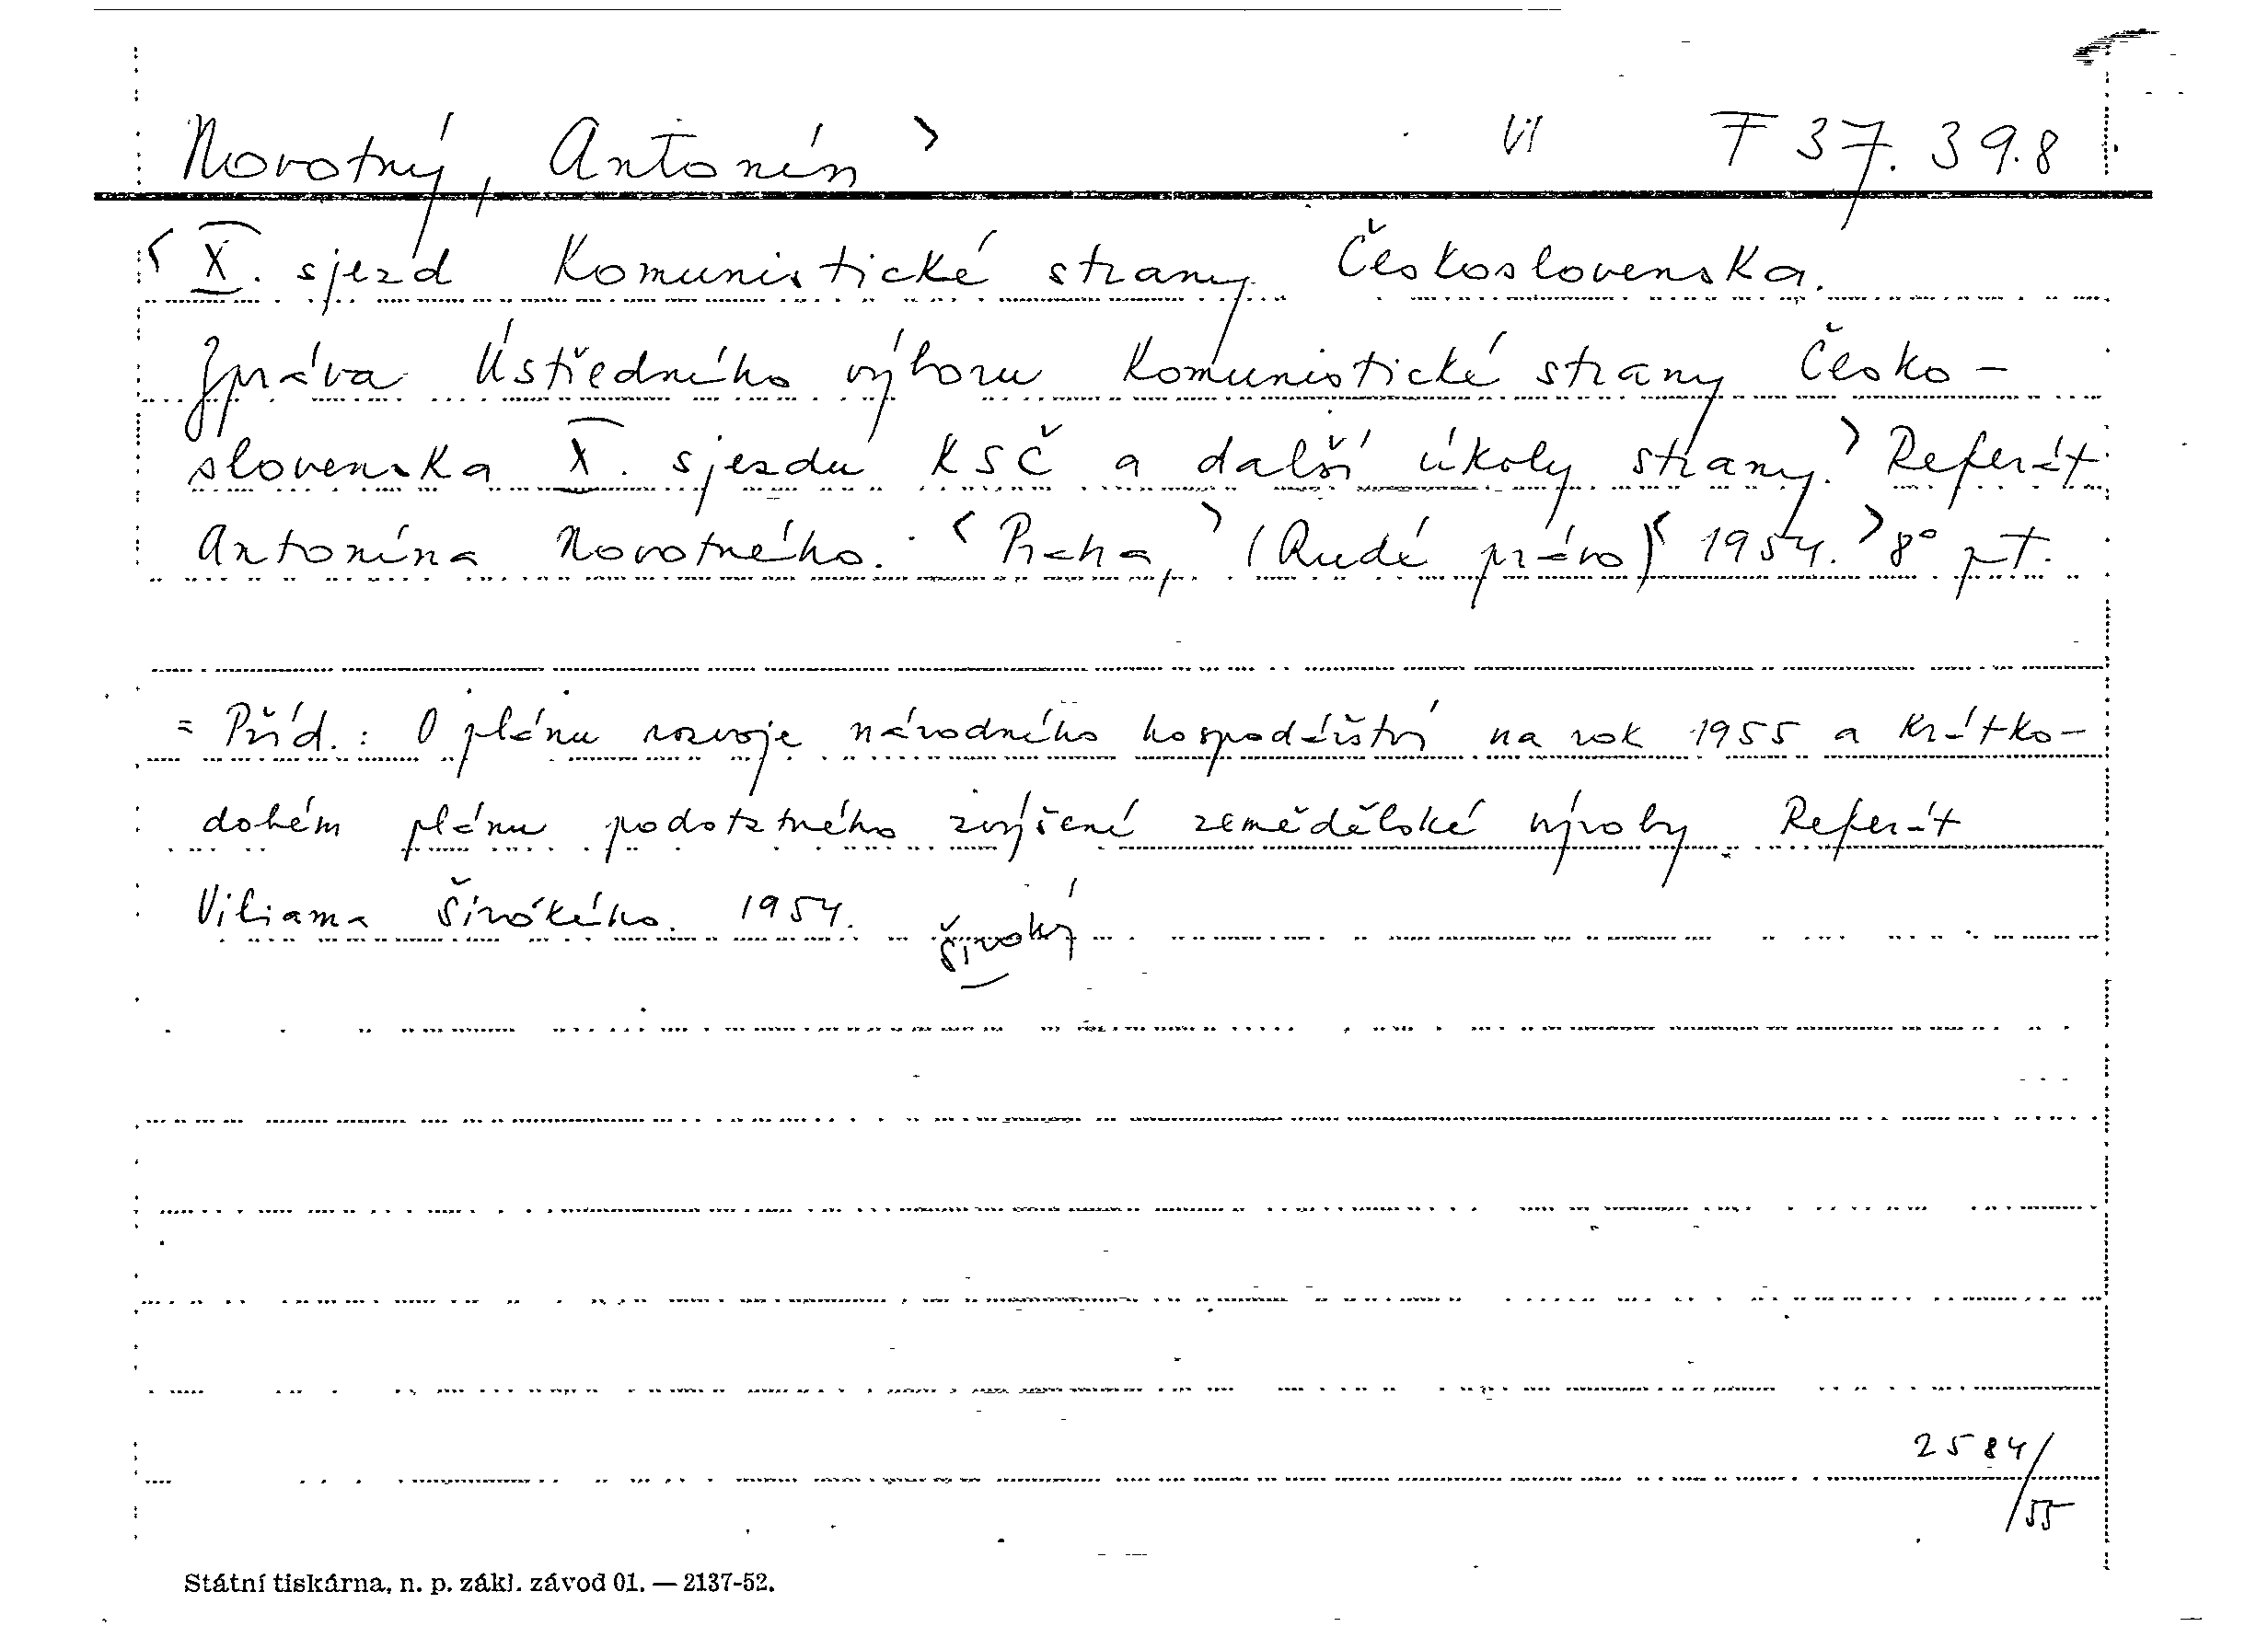 Novotný, Antonín > VI F 37.398
< X. sjezd Komunistické strany Československa.
Zpráva Ústředního výboru Komunistické strany Česko-
slovenska X. sjezdu KSČ a další úkoly strany. > Referát
Antonína Novotného. < Praha, > (Rudé právo) < 1954. > 8° pt.
= Příd.: O plánu rozvoje národního hospodářství na rok 1955 a krátko-
dobém plánu podstatného zvýšení zemědělské výroby. Referát
Viliama Širókého. 1954. Široký
2584/
/55
Státní tiskárna, n. p. zákl. závod 01. — 2137-52.